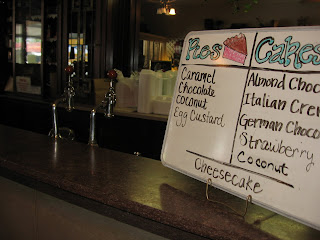 Pies
Caramel
Chocolate
Coconut
Egg Custard
Cakes
Almond Choc
Italian Cre
German Choco
Strawberry
Coconut
Cheesecake